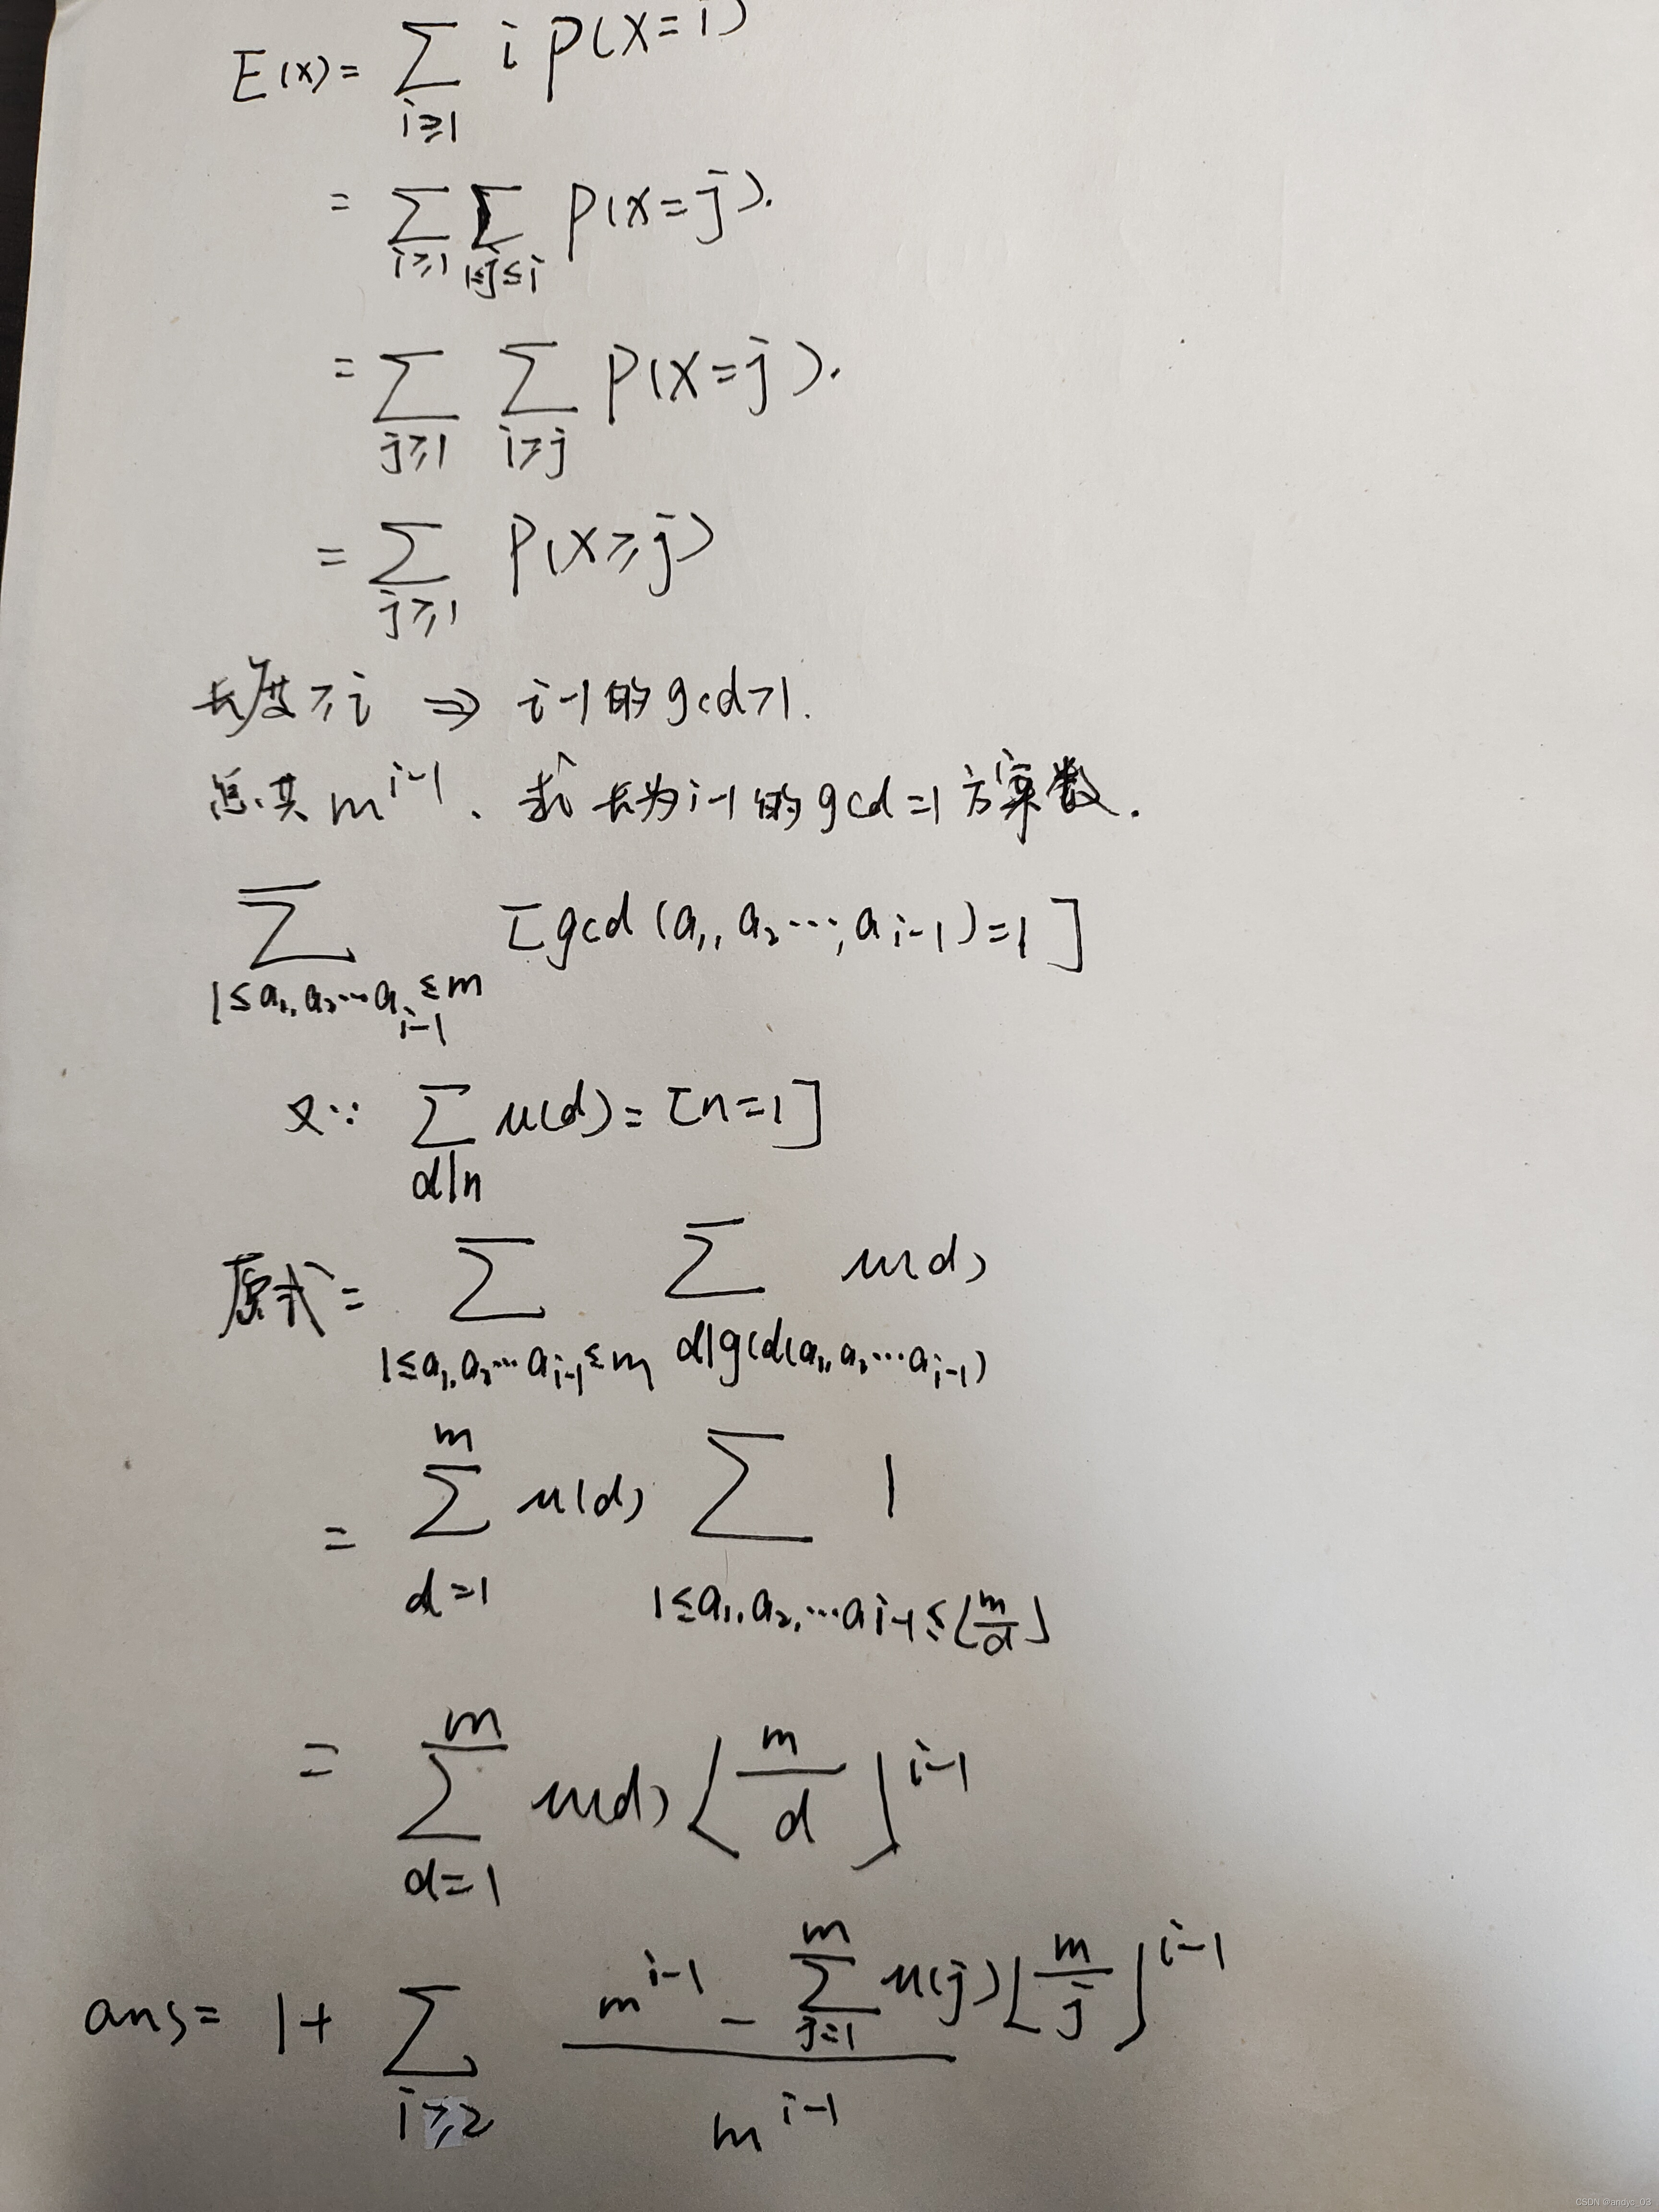 E(x) = ∑_{i≥1} i P(X=i)
= ∑_{i≥1} ∑_{1≤j≤i} P(X=j).
= ∑_{j≥1} ∑_{i≥j} P(X=j).
= ∑_{j≥1} P(X≥j)
长度≥i ⇒ i-1的gcd>1.
总共 m^{i-1}、求长为i-1的gcd=1方案数.
∑_{1≤a_1,a_2…a_{i-1}≤m} [gcd(a_1,a_2…,a_{i-1})=1]
又∵ ∑_{d|n} μ(d) = [n=1]
原式 = ∑_{1≤a_1,a_2…a_{i-1}≤m} ∑_{d|gcd(a_1,a_2…a_{i-1})} μ(d)
= ∑_{d=1}^{m} μ(d) ∑_{1≤a_1,a_2,…a_{i-1}≤⌊m/d⌋} 1
= ∑_{d=1}^{m} μ(d) ⌊m/d⌋^{i-1}
ans = 1 + ∑_{i≥2} (m^{i-1} - ∑_{j=1}^{m} μ(j) ⌊m/j⌋^{i-1}) / m^{i-1}
CSDN @andyc_03